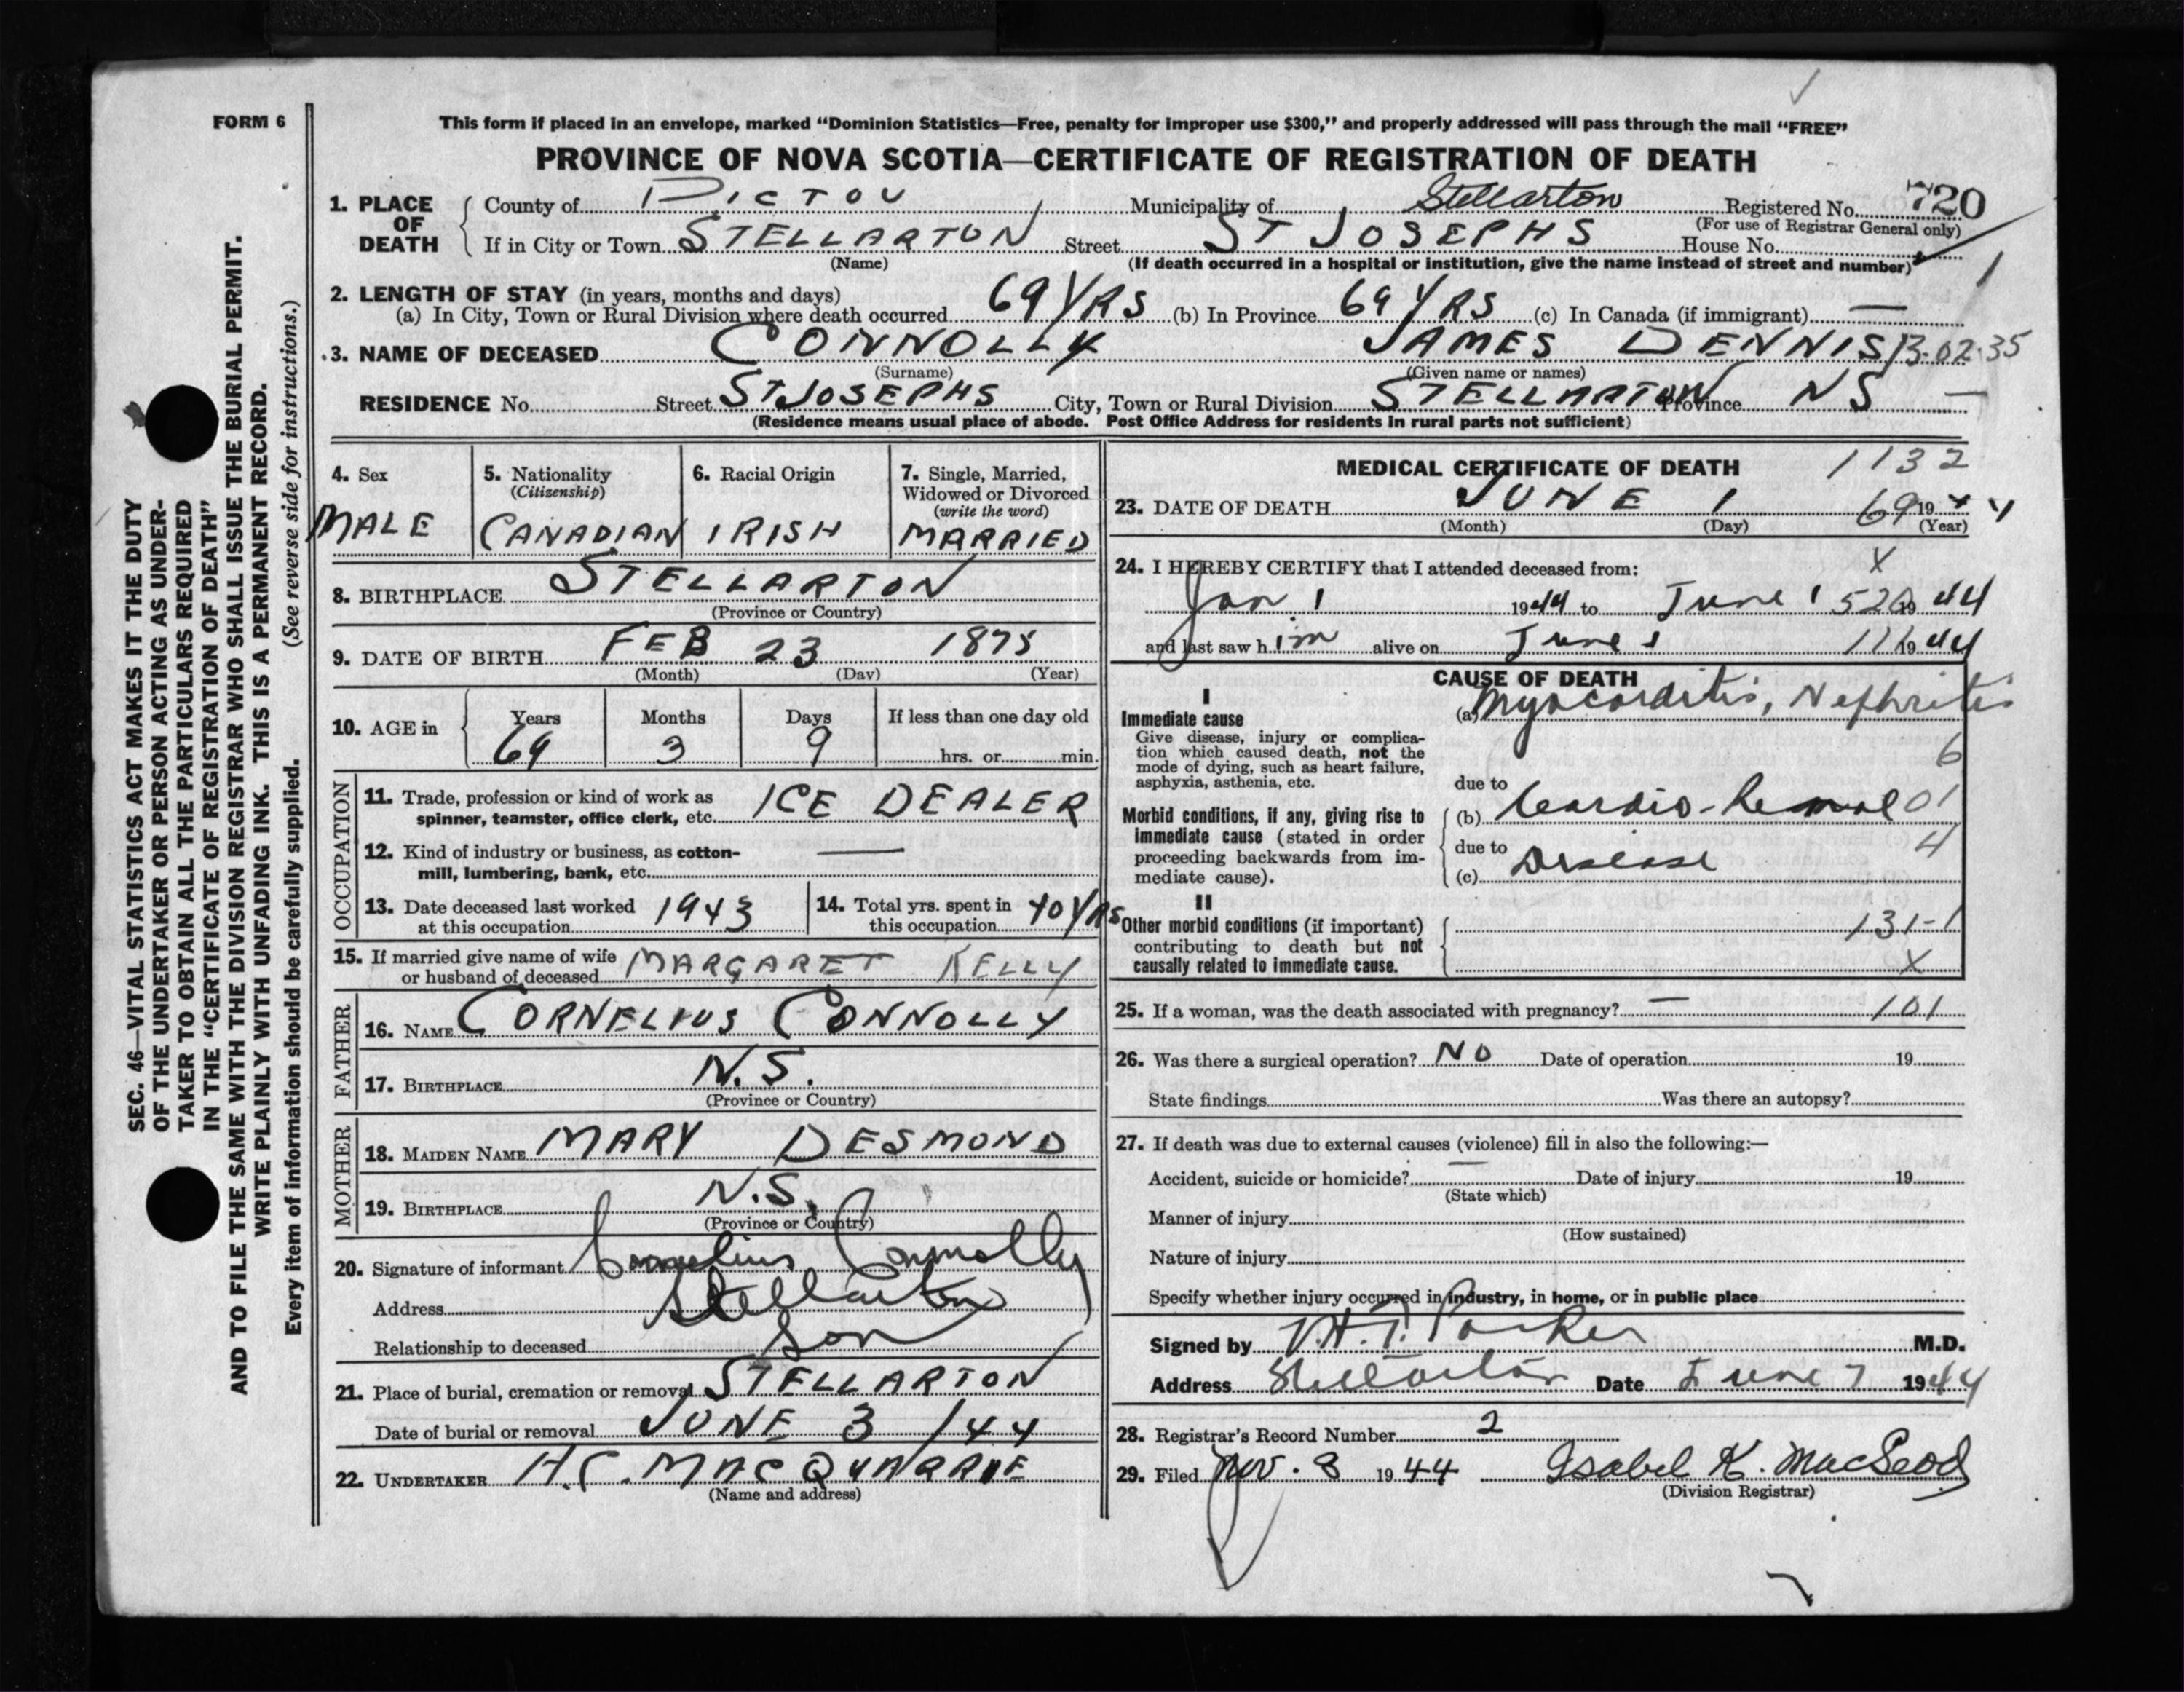 FORM 6
This form if placed in an envelope, marked “Dominion Statistics—Free, penalty for improper use $300,” and properly addressed will pass through the mail “FREE”
PROVINCE OF NOVA SCOTIA—CERTIFICATE OF REGISTRATION OF DEATH
1. PLACE OF DEATH
County of PICTOU Municipality of Stellarton Registered No. 720
(For use of Registrar General only)
If in City or Town STELLARTON Street ST JOSEPHS House No.
(Name) (If death occurred in a hospital or institution, give the name instead of street and number)
2. LENGTH OF STAY (in years, months and days)
(a) In City, Town or Rural Division where death occurred 69 YRS (b) In Province 69 YRS (c) In Canada (if immigrant) —
3. NAME OF DECEASED CONNOLLY JAMES DENNIS 13-02-35
(Surname) (Given name or names)
RESIDENCE No. Street ST JOSEPHS City, Town or Rural Division STELLARTON Province NS —
(Residence means usual place of abode. Post Office Address for residents in rural parts not sufficient)
4. Sex
MALE
5. Nationality
(Citizenship)
CANADIAN
6. Racial Origin
IRISH
7. Single, Married,
Widowed or Divorced
(write the word)
MARRIED
8. BIRTHPLACE STELLARTON
(Province or Country)
9. DATE OF BIRTH FEB 23 1875
(Month) (Day) (Year)
10. AGE in
Years Months Days If less than one day old
69 3 9 hrs. or min.
OCCUPATION
11. Trade, profession or kind of work as
spinner, teamster, office clerk, etc. ICE DEALER
12. Kind of industry or business, as cotton-
mill, lumbering, bank, etc. —
13. Date deceased last worked
at this occupation 1943
14. Total yrs. spent in
this occupation 40 YRS
15. If married give name of wife
or husband of deceased MARGARET KELLY
FATHER
16. NAME CORNELIUS CONNOLLY
17. BIRTHPLACE N.S.
(Province or Country)
MOTHER
18. MAIDEN NAME MARY DESMOND
19. BIRTHPLACE N.S.
(Province or Country)
20. Signature of informant Cornelius Connolly
Address Stellarton
Relationship to deceased Son
21. Place of burial, cremation or removal STELLARTON
Date of burial or removal JUNE 3 / 44
22. UNDERTAKER H.C. MACQUARRIE
(Name and address)
MEDICAL CERTIFICATE OF DEATH 1132
23. DATE OF DEATH JUNE 1 69 1944
(Month) (Day) (Year)
24. I HEREBY CERTIFY that I attended deceased from: X
Jan 1 1944 to June 1 520 1944
and last saw him alive on June 1 11 1944
CAUSE OF DEATH
I
Immediate cause
Give disease, injury or complica-
tion which caused death, not the
mode of dying, such as heart failure,
asphyxia, asthenia, etc.
(a) Myocarditis, Nephritis
6
due to
Morbid conditions, if any, giving rise to
immediate cause (stated in order
proceeding backwards from im-
mediate cause).
(b) Cardio-Renal 01
due to 4
(c) Disease
II
Other morbid conditions (if important)
contributing to death but not
causally related to immediate cause.
131-1
X
25. If a woman, was the death associated with pregnancy? — 101
26. Was there a surgical operation? NO Date of operation 19
State findings Was there an autopsy?
27. If death was due to external causes (violence) fill in also the following:—
Accident, suicide or homicide? — Date of injury 19
(State which)
Manner of injury
(How sustained)
Nature of injury
Specify whether injury occurred in industry, in home, or in public place
Signed by V.H.T. Parker M.D.
Address Stellarton Date June 7 1944
28. Registrar's Record Number 2
29. Filed Nov. 8 1944 Isabel K. MacLeod
(Division Registrar)
SEC. 46—VITAL STATISTICS ACT MAKES IT THE DUTY
OF THE UNDERTAKER OR PERSON ACTING AS UNDER-
TAKER TO OBTAIN ALL THE PARTICULARS REQUIRED
IN THE “CERTIFICATE OF REGISTRATION OF DEATH”
AND TO FILE THE SAME WITH THE DIVISION REGISTRAR WHO SHALL ISSUE THE BURIAL PERMIT.
WRITE PLAINLY WITH UNFADING INK. THIS IS A PERMANENT RECORD.
Every item of information should be carefully supplied. (See reverse side for instructions.)